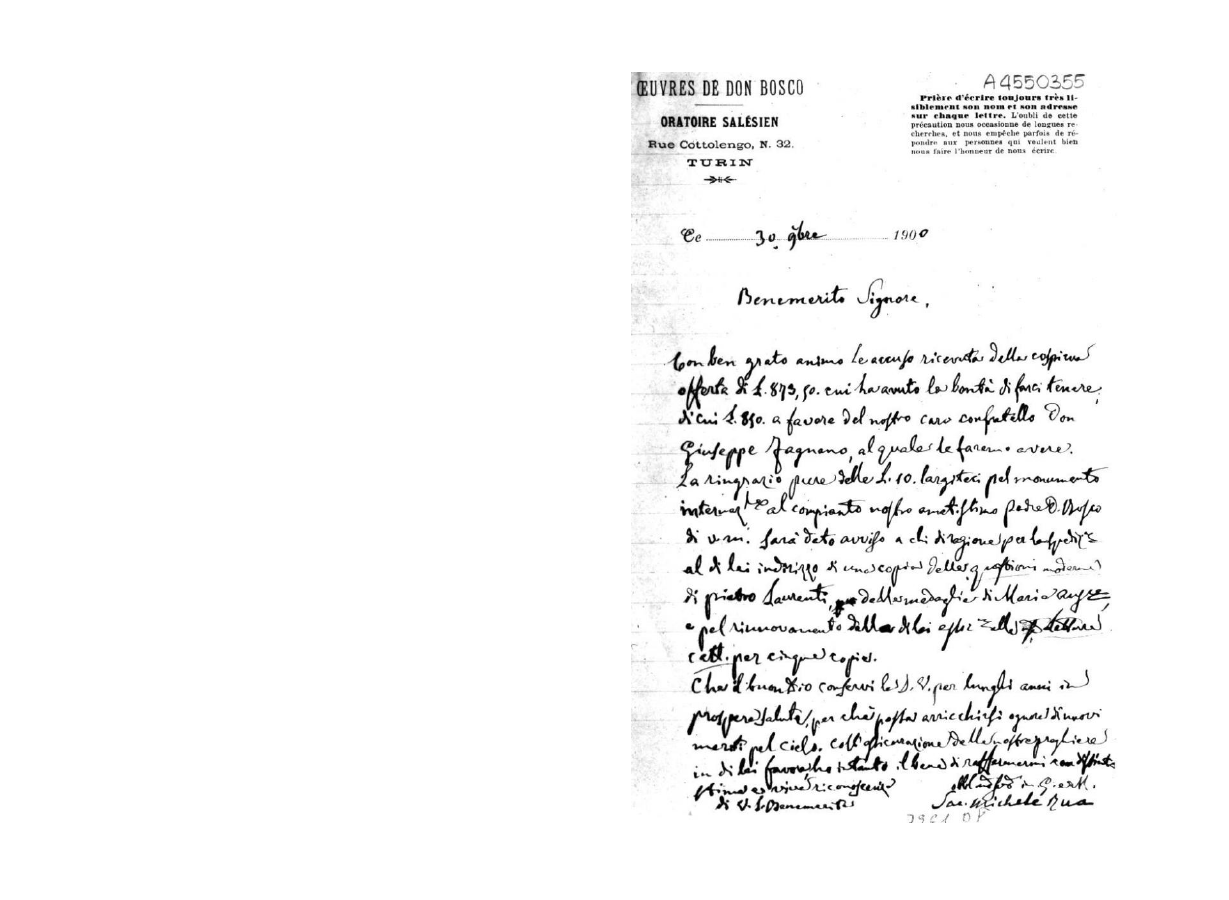 ŒUVRES DE DON BOSCO
ORATOIRE SALÉSIEN
Rue Cottolengo, N. 32.
TURIN
A4550355
Prière d'écrire toujours très li-
siblement son nom et son adresse
sur chaque lettre. L'oubli de cette
précaution nous occasionne de longues re-
cherches, et nous empêche parfois de ré-
pondre aux personnes qui veulent bien
nous faire l'honneur de nous écrire.
Ce 30 9bre 1900
Benemerito Signore,
Con ben grato animo le accuso ricevuta della cospicua
offerta di L. 873,50. cui ha avuto la bontà di farci tenere,
di cui L. 850. a favore del nostro caro confratello Don
Giuseppe Fagnano, al quale le faremo avere.
La ringrazio pure delle L. 10. largiteci pel monumento
internaz.le al compianto nostro amatissimo padre D. Bosco
di v. m. Sarà dato avviso a chi di ragione per la spediz.e
al di lei indirizzo di una copia delle questioni moderne
di pietro Laurenti, delle medaglie di Maria
e pel rinnovamento della di lei delle letture
catt. per cinque copie.
Che il buon Dio conservi la S. V. per lunghi anni in
prospera salute, per che possa arricchirsi ognor di nuovi
meriti pel cielo. Coll'assicurazione delle nostre preghiere
in di lei favore ho intanto il bene di raffermarmi con distinta
stima e viva riconoscenza
di V. S. Benemerita
in G. e M.
Sac. Michele Rua